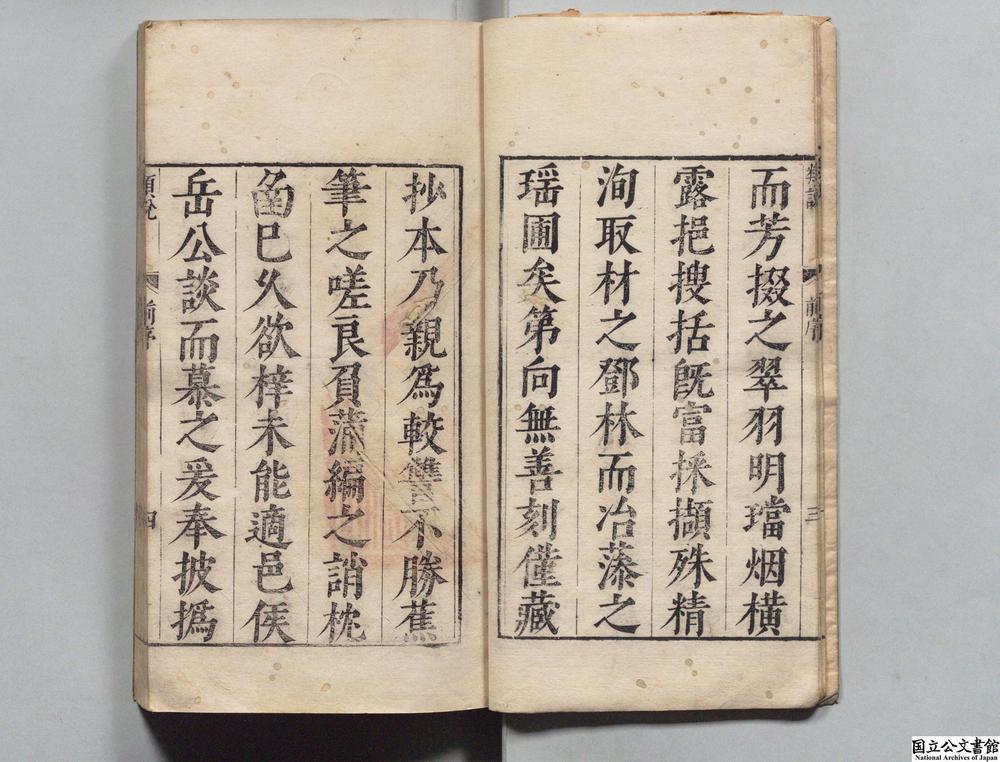 類說 前序 三
而芳掇之翠羽明璫烟橫
露挹搜括旣富採擷殊精
洵取材之鄧林而冶藻之
瑶圃矣第向無善刻僅藏
抄本乃親爲較讐不勝蕉
筆之嗟良負蒲編之誚枕
圅巳久欲梓未能適邑侯
岳公談而慕之爰奉披撝
類說 前序 四
国立公文書館
National Archives of Japan